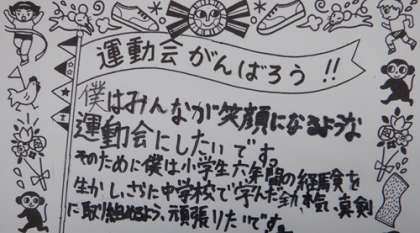 運動会がんばろう!!
僕はみんなが笑顔になるような
運動会にしたいです。
そのために僕は小学生六年間の経験を
生かし、さらに中学校で学んだ、本気、真剣
に取り組めるよう、頑張りたいです。